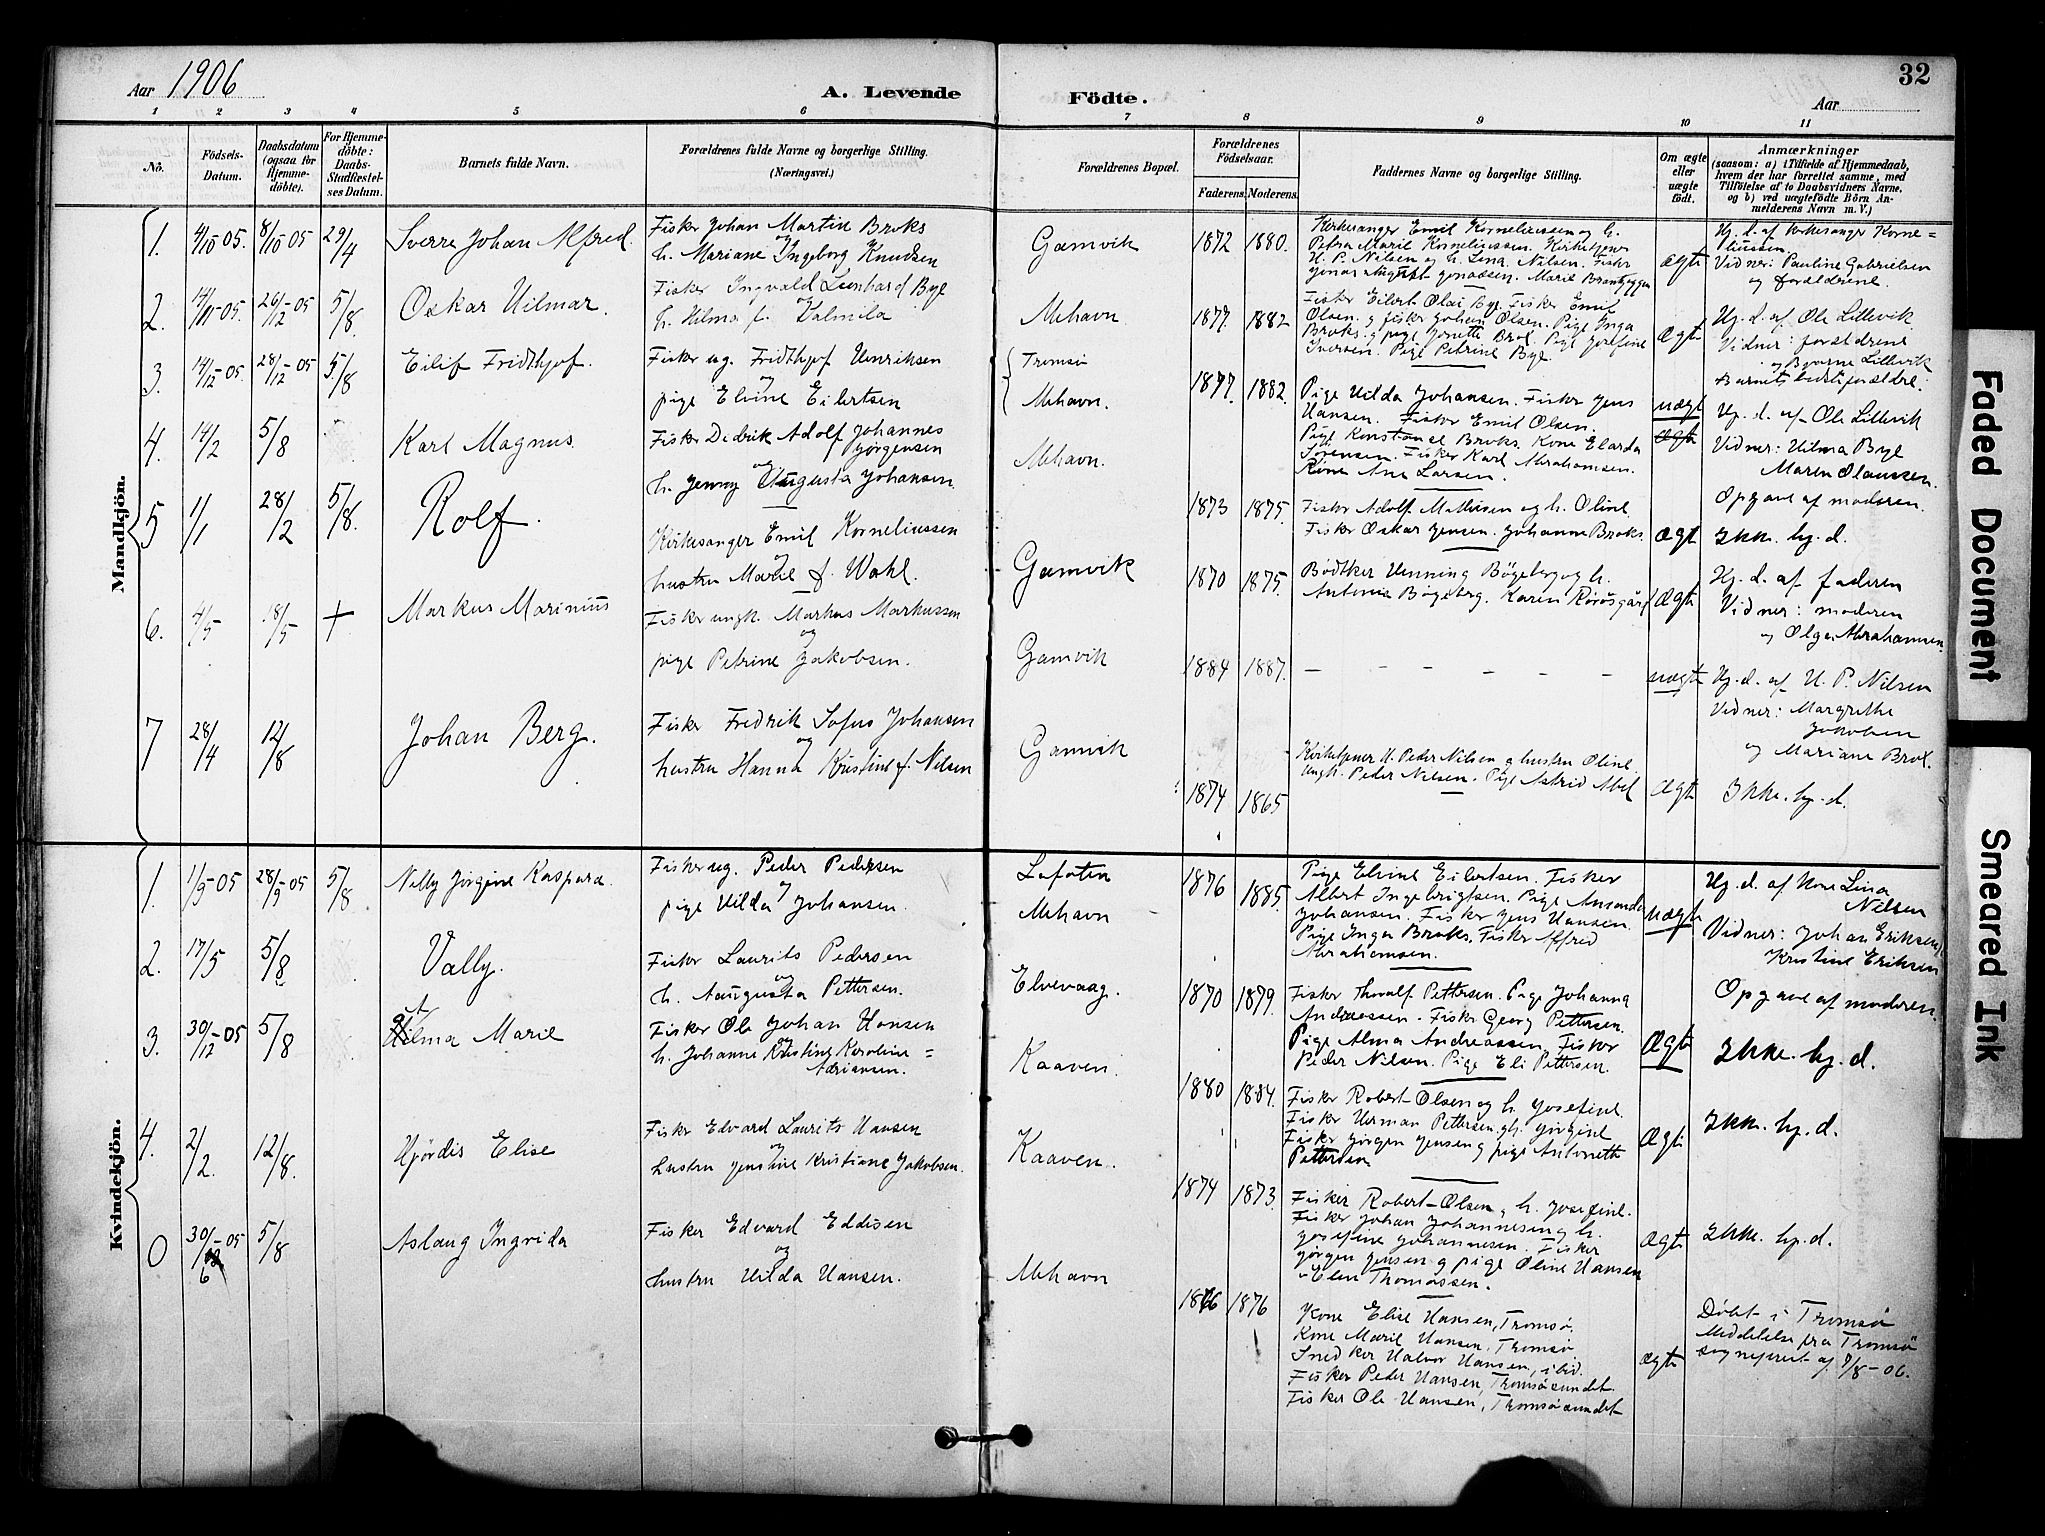 32
Aar 1906
A. Levende Födte.
Aar
1 2 3 4 5 6 7 8 9 10 11
No.
Födsels-Datum.
Daabsdatum (ogsaa for Hjemme-döbte).
For Hjemme-döbte: Daabs-Stadfæstel-ses Datum.
Barnets fulde Navn.
Forældrenes fulde Navne og borgerlige Stilling.
(Næringsvei.)
Forældrenes Bopæl.
Forældrenes Födselsaar.
Faderens. Moderens.
Faddernes Navne og borgerlige Stilling.
Om ægte eller uægte födt.
Anmærkninger
(saasom: a) i Tilfælde af Hjemmedaab,
hvem der har forrettet samme, med
Tilföielse af to Daabsvidners Navne,
og b) ved uægtefödte Börn An-
melderens Navn m. V.)
Mandkjön.
1. 4/10 05. 8/10 05 29/4 Sverre Johan Alfred.
Fisker Johan Martin Broks
og
h. Mariane Ingeborg Knudsen
Gamvik 1872 1880.
Kirkesanger Emil Korneliussen og h.
Petra Marie Korneliussen. Kirketjener
H. P. Nilsen og h. Lena Nilsen. Fisker
ægte
Hj. d. af Kirkesanger Korne=
liussen.
Vidner: Pauline Gabrielsen
og forældrene.
2. 14/11-05. 26/12-05 5/8. Oskar Hilmar.
Fisker Ingvald Leonhard Bye
og
h. Hilma f. Kalmila
Mehavn. 1877. 1882
Fisker Eilert Olai Bye. Fisker Emil
Olsen. g fisker Johan Olsen. Pige Inga
Broks. g pige Jonette Brox. Pige Josefine
Iversen. Pige Petrine Bye.
Ægte
Hj. d. af Ole Lillevik
Vidner: forældrene
og Bjarne Lillevik
3. 14/12-05. 28/12-05 5/8 Eilif Fridthjof.
Fisker ug. Fridthjof Henriksen
og
pige Elvine Eilertsen
Tromsö
Mehavn.
1877. 1882.
Pige Hilda Johansen. Fisker Jens
Hansen. Fisker Emil Olsen.
Pige Konstanse Broks. Kone Elarda
Sörensen. Fisker Karl Abrahamsen.
Kone Ane Larsen.
uægt
ægte
Barnets bedsteforældre.
Hj. d. af Ole Lillevik
Vidner: Hilma Bye
Maren Olaussen.
Opgave af moderen.
4. 14/2 5/8 Karl Magnus
Fisker Dedrik Adolf Johannes
Jörgensen
og
h. Jenny Augusta Johansen.
Mehavn. 1873 1875.
Fisker Adolf Mathisen og h. Oline
Fisker Oskar Jensen. Johanne Broks.
Ægt Ikke. hj. d.
5 1/1 28/2 5/8. Rolf.
Kirkesanger Emil Korneliussen
og
hustru Marie f. Wahl.
Gamvik 1870 1875.
Bödtker Henning Bögeberg og h.
Antonia Bögeberg. Karen Rörösgård
Ægte
Hj. d. af faderen
Vidner: moderen
og Olga Abrahamsen.
6. 4/5 18/5 + Markus Marinius
Fisker ungk. Markus Markussen
og
pige Petrine Jakobsen.
Gamvik 1884 1887. – – – – –
uægte
Hj. d. af H. P. Nilsen
Vidner: Margrethe
Jakobsen
og Mariane Brox.
7 28/4 12/8 Johan Berg.
Fisker Fredrik Sofus Johansen
og
hustru Hanna Kristine f. Nilsen
Gamvik 1874 1865
Kirketjener H. Peder Nilsen g hustru Oline.
Ungk. Peder Nilsen. Pige Astrid Abel
Ægte Ikke. hj. d.
Kvindekjön.
1. 1/9-05 28/9-05 5/8 Nelly Jörgine Kaspara.
Fisker ug. Peder Pedersen
og
pige Hilda Johansen.
Lofoten
Mehavn
1876 1885.
Pige Elvine Eilertsen. Fisker
Albert Ingebrigtsen. Pige Amanda
Johansen. Fisker Jens Hansen.
Pige Inga Broks. Fisker Alfred
Abrahamsen.
uægte
Hj. d. af Kone Lina
Nilsen
Vidner: Johan Eriksen
Kristine Eriksen
Opgave af moderen.
2. 17/5 5/8 Vally.
Fisker Laurits Pedersen
og
h. Augusta Pettersen.
Elvevaag. 1870 1879.
Fisker Thoralf Pettersen. Pige Johanna
Andreassen. Fisker Georg Pettersen.
Pige Alma Andreassen, Fisker
Peder Nilsen. Pige Eli Pettersen.
Ægte Ikke. hj. d.
3. 30/12-05 5/8 Alma Marie
Fisker Ole Johan Hansen
h. Johanne Kristine Karoline =
Adriansen.
Kaaven. 1880 1884.
Fisker Robert Olsen og h. Josefine.
Fisker Herman Pettersen g h. Jörgine
Fisker Jörgen Jensen g pige Antonette
Pettersen
Ægte Ikke. hj. d.
4. 2/2. 12/8. Hjördis Elise
Fisker Edvard Laurits Hansen
og
hustru Jensine Kristiane Jakobsen.
Kaaven. 1874 1873.
Fisker Robert Olsen g h. Josefine.
Fisker Johan Johannesen g h.
Josefine Johannesen. Fisker
Jörgen Jensen g pige Oline Hansen
Elen Thomassen.
Ægte Ikke. hj. d.
0 30/6-05 5/8 Aslaug Ingrida
Fisker Edvard Eddisen
og
hustru Hilda Hansen.
Mehavn 1876 1876
Kone Elise Hansen, Tromsö.
Kone Marie Hansen. Tromsö
Snedker Halvor Hansen, ibid.
Fisker Peder Hansen, Tromsösundet.
Fisker Ole Hansen, Tromsösundet
ægte
Döbt i Tromsö
Meddelelse fra Tromsö
sogneprest af 9/8-06.
Faded Document
Smeared Ink